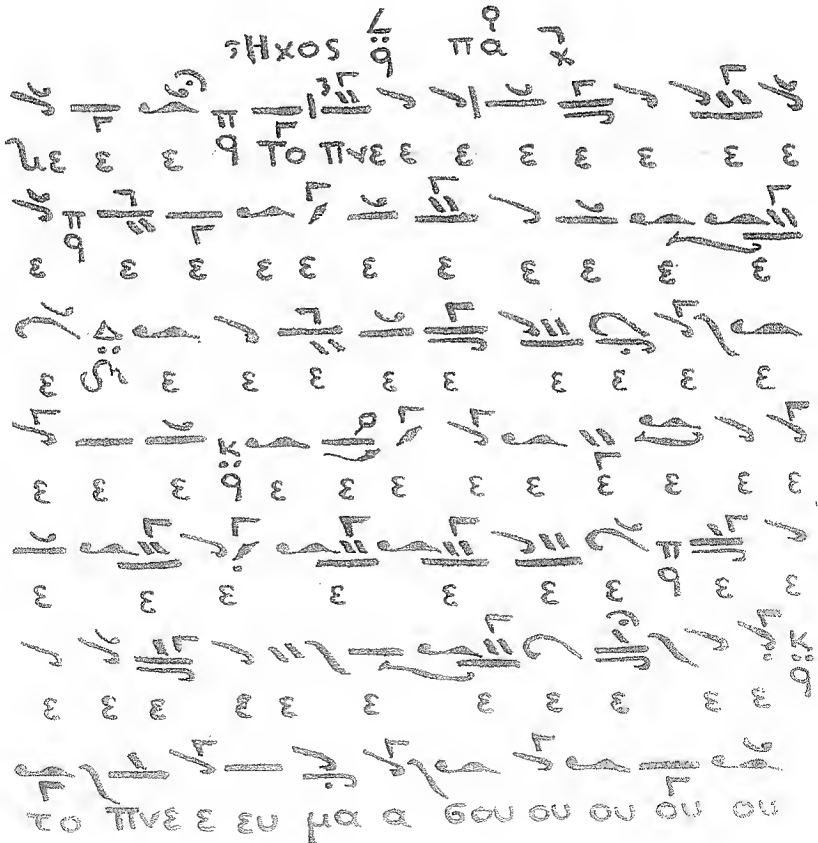 Ἦχος πα
με ε ε π το πνε ε ε ε ε ε ε ε
ε π ε ε ε ε ε ε ε ε ε ε
ε Δ ε ε ε ε ε ε ε ε ε
ε ε ε κ ε ε ε ε ε ε ε ε ε
ε ε ε ε ε ε ε π ε ε
ε ε ε ε ε ε ε ε ε ε ε κ
το πνε ε ευ μα α σου ου ου ου ου